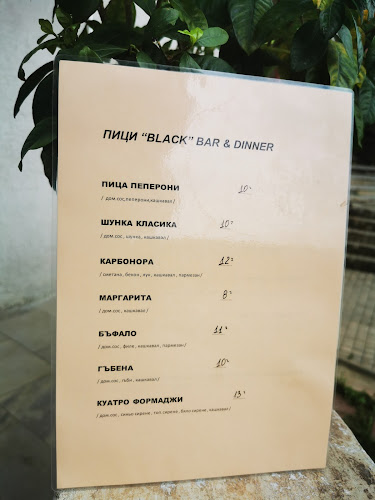 ПИЦИ "BLACK" BAR & DINNER
ПИЦА ПЕПЕРОНИ 10
/ дом.сос,пеперони,кашкавал /
ШУНКА КЛАСИКА 10
/ дом.сос , шунка , кашкавал /
КАРБОНОРА 12
/ сметана , бекон , лук , кашкавал , пармезан/
МАРГАРИТА 8
/ дом.сос , кашкавал /
БЪФАЛО 11
/ дом.сос , филе , кашкавал , пармезан/
ГЪБЕНА 10
/ дом.сос , гъби , кашкавал /
КУАТРО ФОРМАДЖИ 13
/ дом.сос , синьо сирене , топ.сирене , бяло сирене , кашкавал /